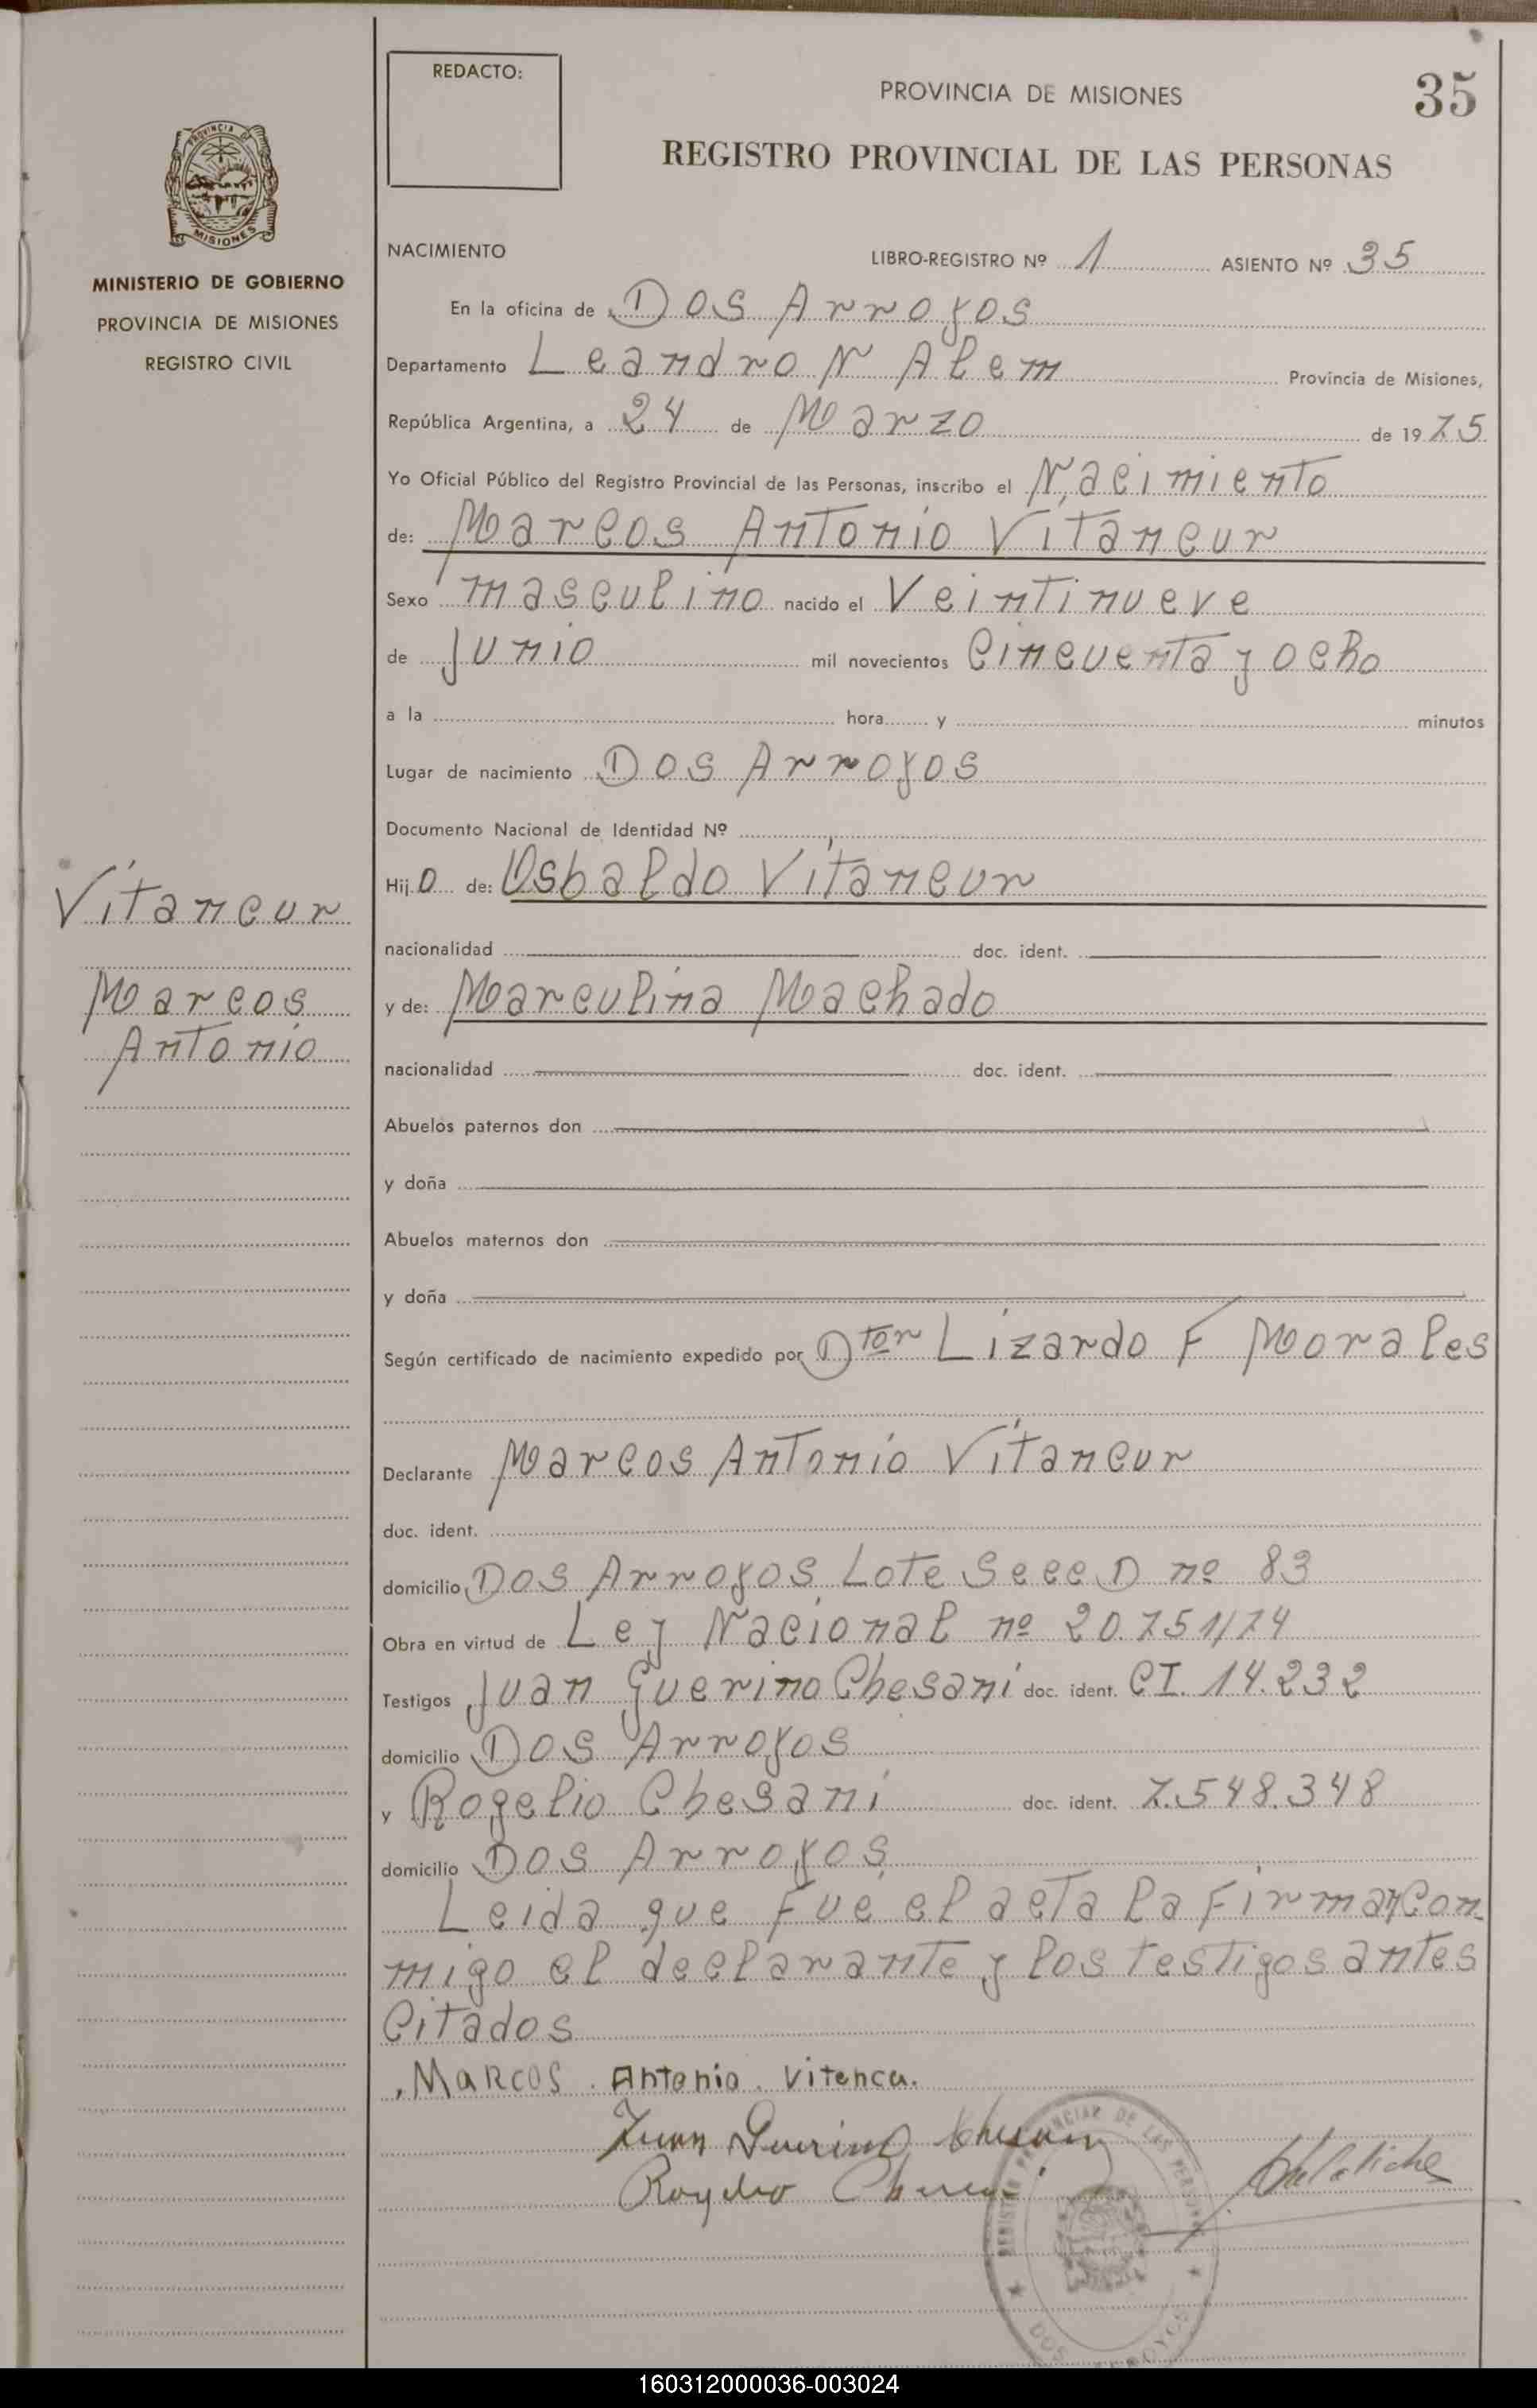 REDACTO:
PROVINCIA DE MISIONES
35
REGISTRO PROVINCIAL DE LAS PERSONAS
PROVINCIA DE
MISIONES
MINISTERIO DE GOBIERNO
PROVINCIA DE MISIONES
REGISTRO CIVIL
Vitancur
Marcos
Antonio
NACIMIENTO LIBRO-REGISTRO Nº 1 ASIENTO Nº 35
En la oficina de Dos Arroyos
Departamento Leandro N Alem Provincia de Misiones,
República Argentina, a 24 de Marzo de 1975
Yo Oficial Público del Registro Provincial de las Personas, inscribo el Nacimiento
de: Marcos Antonio Vitancur
Sexo masculino nacido el Veintinueve
de Junio mil novecientos Cincuenta y ocho
a la hora y minutos
Lugar de nacimiento Dos Arroyos
Documento Nacional de Identidad Nº
Hijo de: Osbaldo Vitancur
nacionalidad doc. ident.
y de: Marculina Machado
nacionalidad doc. ident.
Abuelos paternos don
y doña
Abuelos maternos don
y doña
Según certificado de nacimiento expedido por Dtor Lizardo F Morales
Declarante Marcos Antonio Vitancur
doc. ident.
domicilio Dos Arroyos Lote Secc D nº 83
Obra en virtud de Ley Nacional nº 20.751/74
Testigos Juan Guerino Chesani doc. ident. CI. 14.232
domicilio Dos Arroyos
y Rogelio Chesani doc. ident. 7.548.348
domicilio Dos Arroyos
Leida que fue el acta la firman con
migo el declarante y los testigos antes
Citados
Marcos Antonio Vitencu.
Juan Guerino Chesani
Rogelio Chesani
REGISTRO PROVINCIAL DE LAS PERSONAS
DOS ARROYOS
160312000036-003024